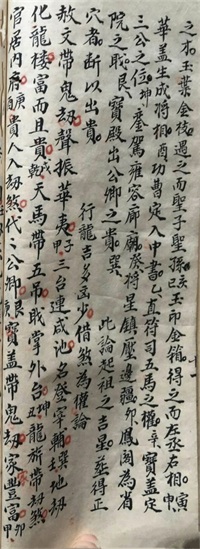 之和玉葉金枝遇之而聖子聖孫亥玉印金箱得之而左丞右相寅
華盖生成將相酉功曹定入中書乙直符司五馬之權辛寳盖定
三公之位坤鑾駕雍容廊廟癸將星鎮壓邊疆卯鳳閣為省
院之職艮寳殿出公卿之貴巽 此論起祖之吉星葬得正
穴者断以出貴
行龍吉多凶少借煞為權論
赦文帶鬼劫聲振華夷子三台連咸池名登宰輔巽地劫
化龍楼富而且貴乾天馬帶五吊職掌外台坤龍旂帶劫煞
官居内府庚貴人入劫煞代代公卿艮寳盖帶鬼劫家豈富甲卯